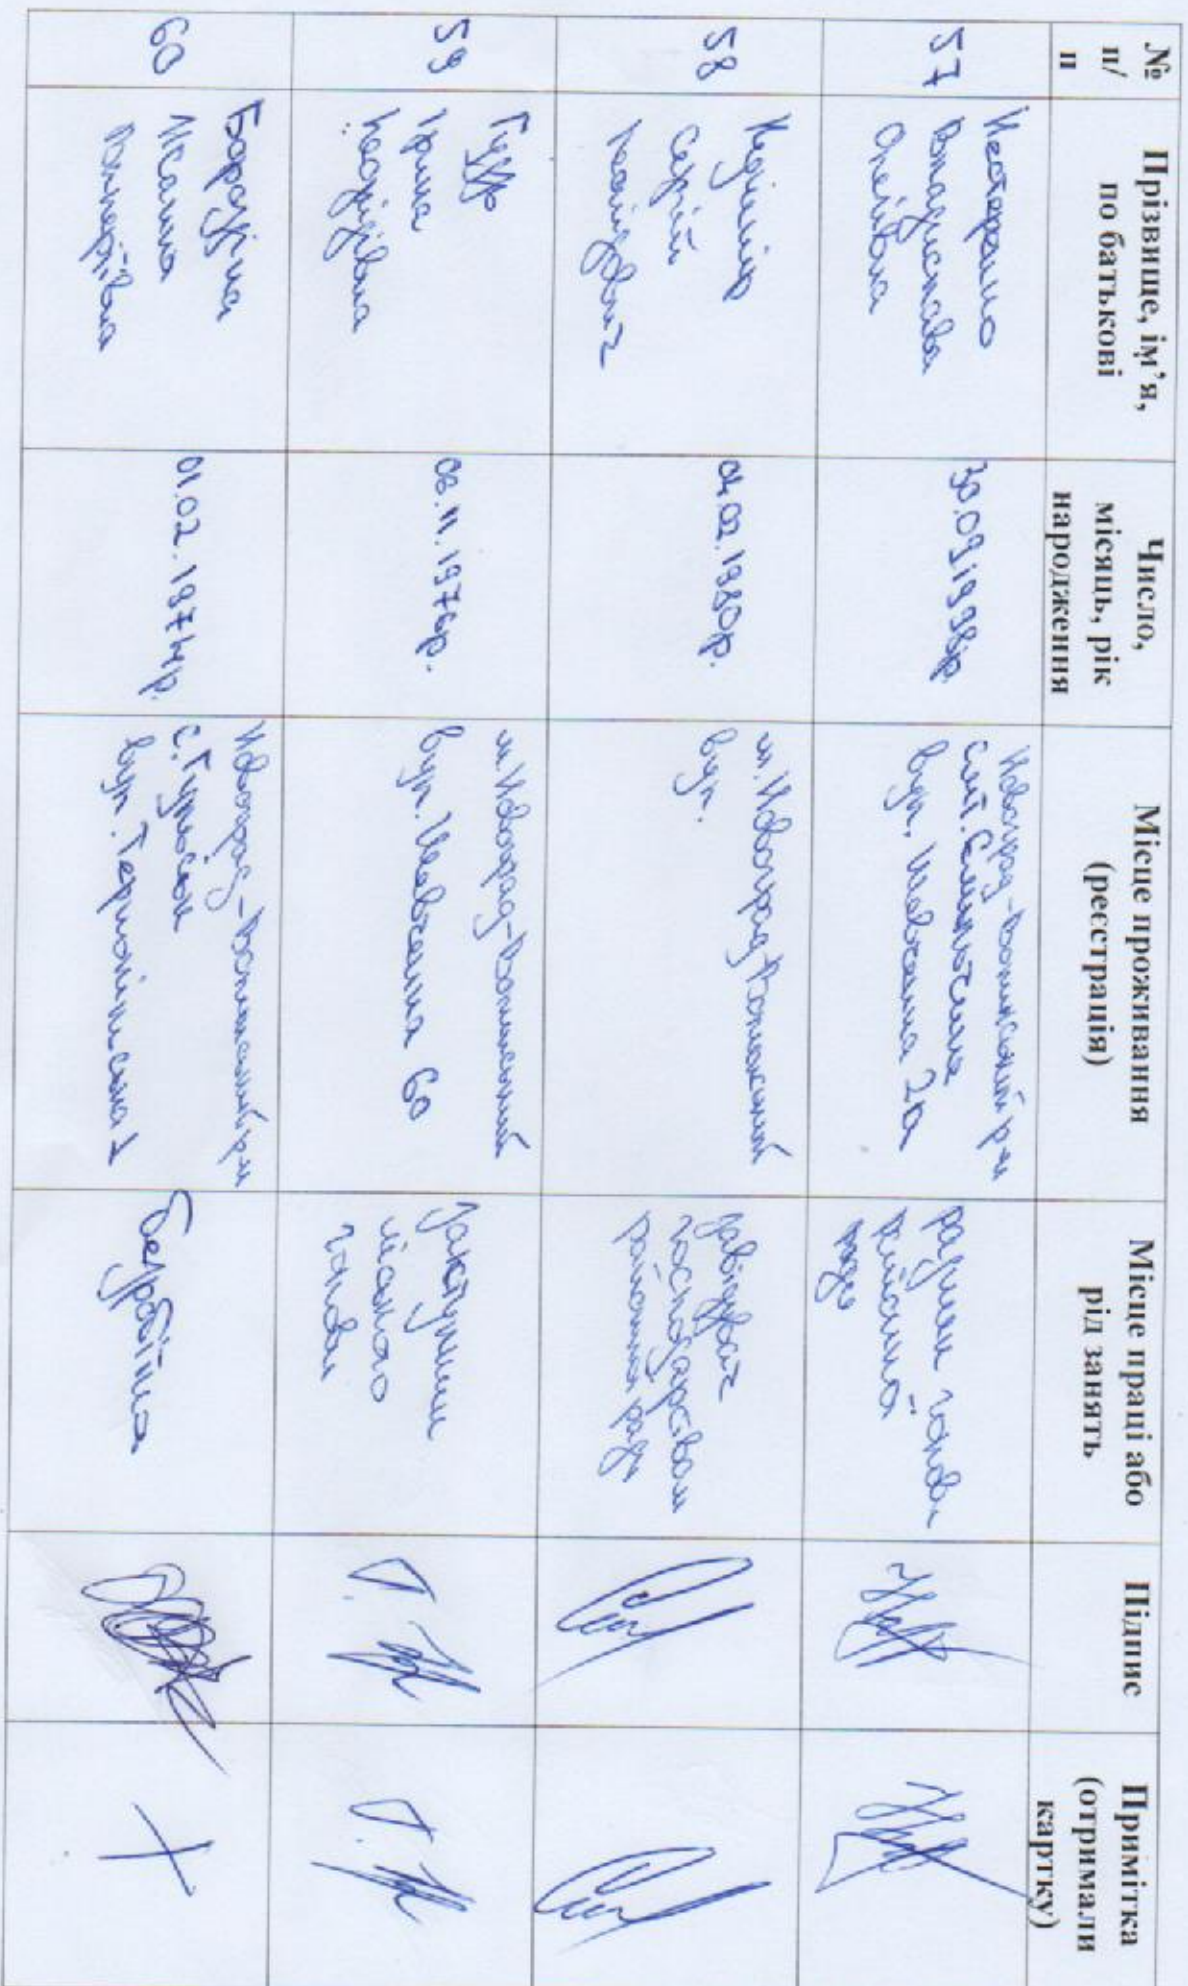 №
п/
п
Прізвище, ім'я,
по батькові
Число,
місяць, рік
народження
Місце проживання
(реєстрація)
Місце праці або
рід занять
Підпис
Примітка
(отримали
картку)
57
Нестеренко
Владислава
Олегівна
30.09.1998р.
Новоград-Волинський р-н
смт. Ємільчине
вул. Шевченка 2а
голови
районної
ради
58
Сергій
Леонідович
04.02.1980р.
м. Новоград-Волинський
вул.
завідувач
господарством
районної ради
59
Ірина
Леонідівна
06.11.1976р.
м. Новоград-Волинський
вул. Шевченка 60
заступник
міського
голови
60
Бородіна
Жанна
Валеріївна
01.02.1974р.
Новоград-Волинський р-н
с.
вул. Тернопільська 1
безробітна